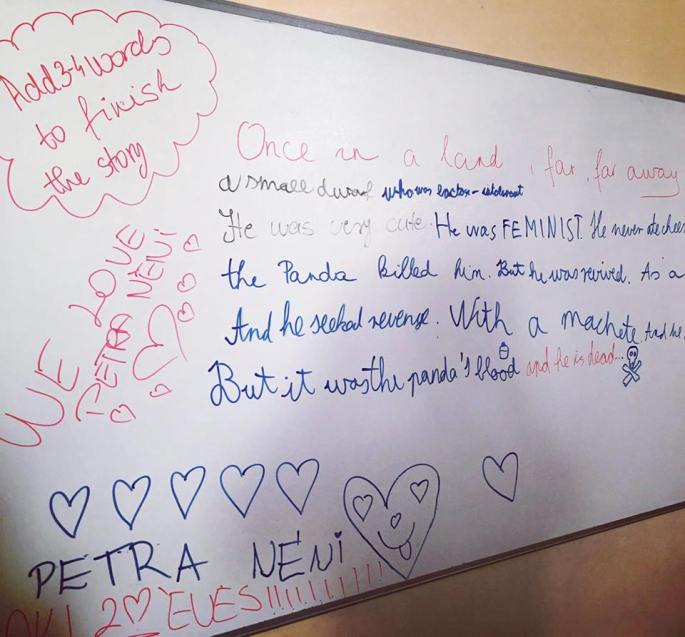 Add 3-4 words
to finish
the story
Once in a land, far, far away
a small dwarf who was lactose-intolerant
He was very cute. He was FEMINIST. He never ate chee
the Panda killed him. But he was revived. As a
And he seeked revenge. With a machete. And he
But it was the panda's blood and he is dead...
WE LOVE
PETRA NÉNI
PETRA NÉNI
20 ÉVES!!!!!!!!!!